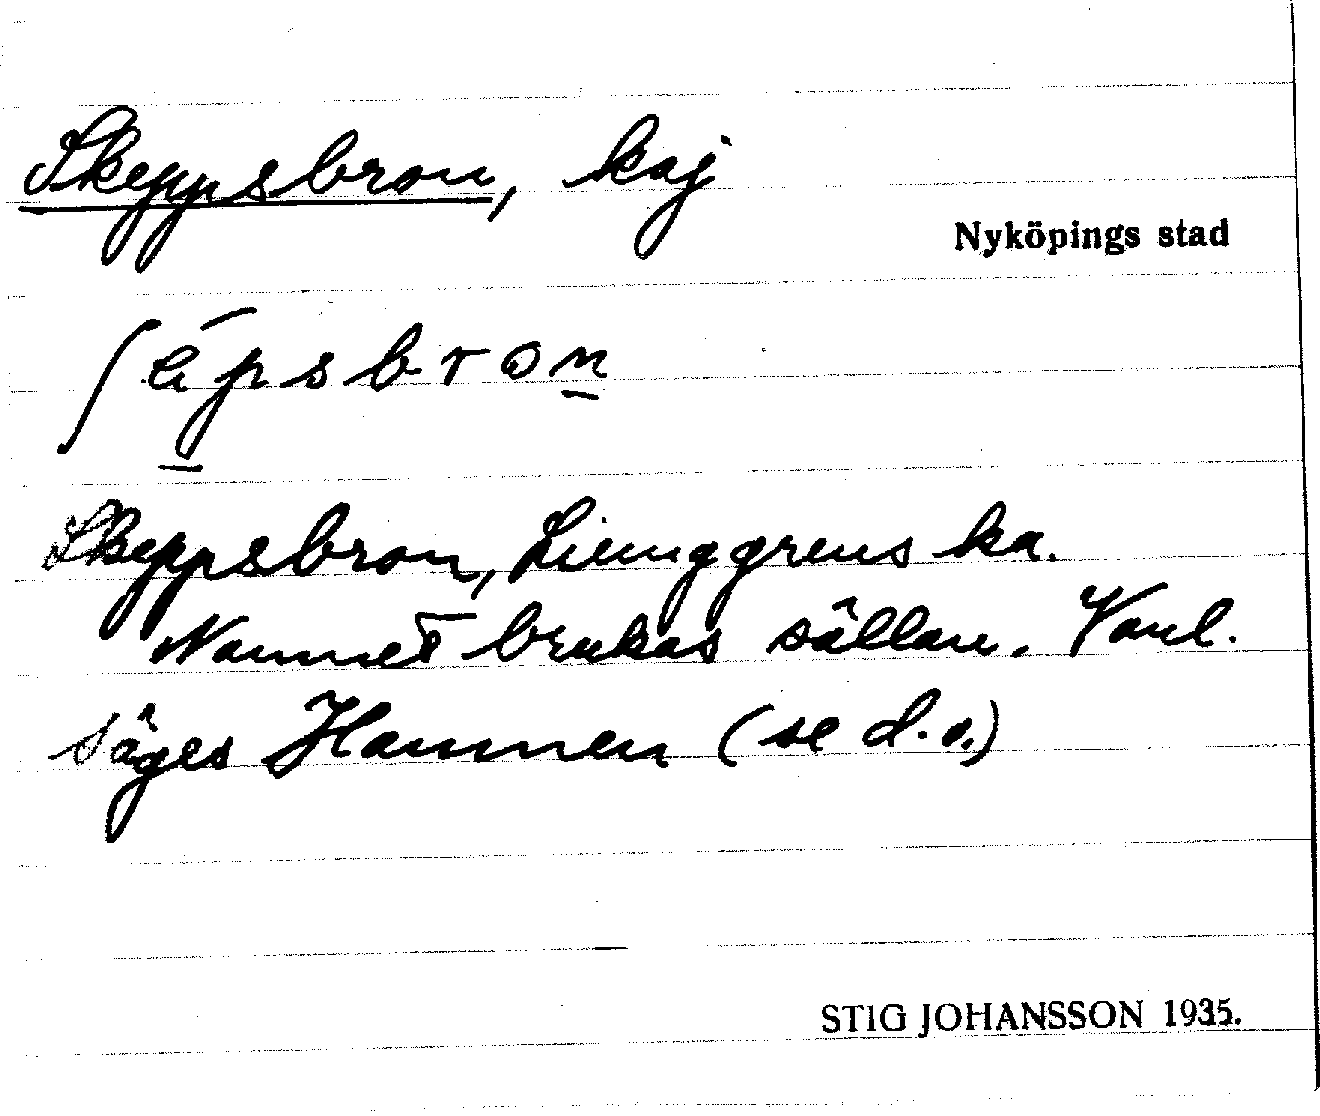 Skeppsbron, kaj
Nyköpings stad
ʃépsbron
Skeppsbron, Ljunggrens ka.
Namnet brukas sällan. Vanl.
säges Hamnen (se d.o.)
STIG JOHANSSON 1935.